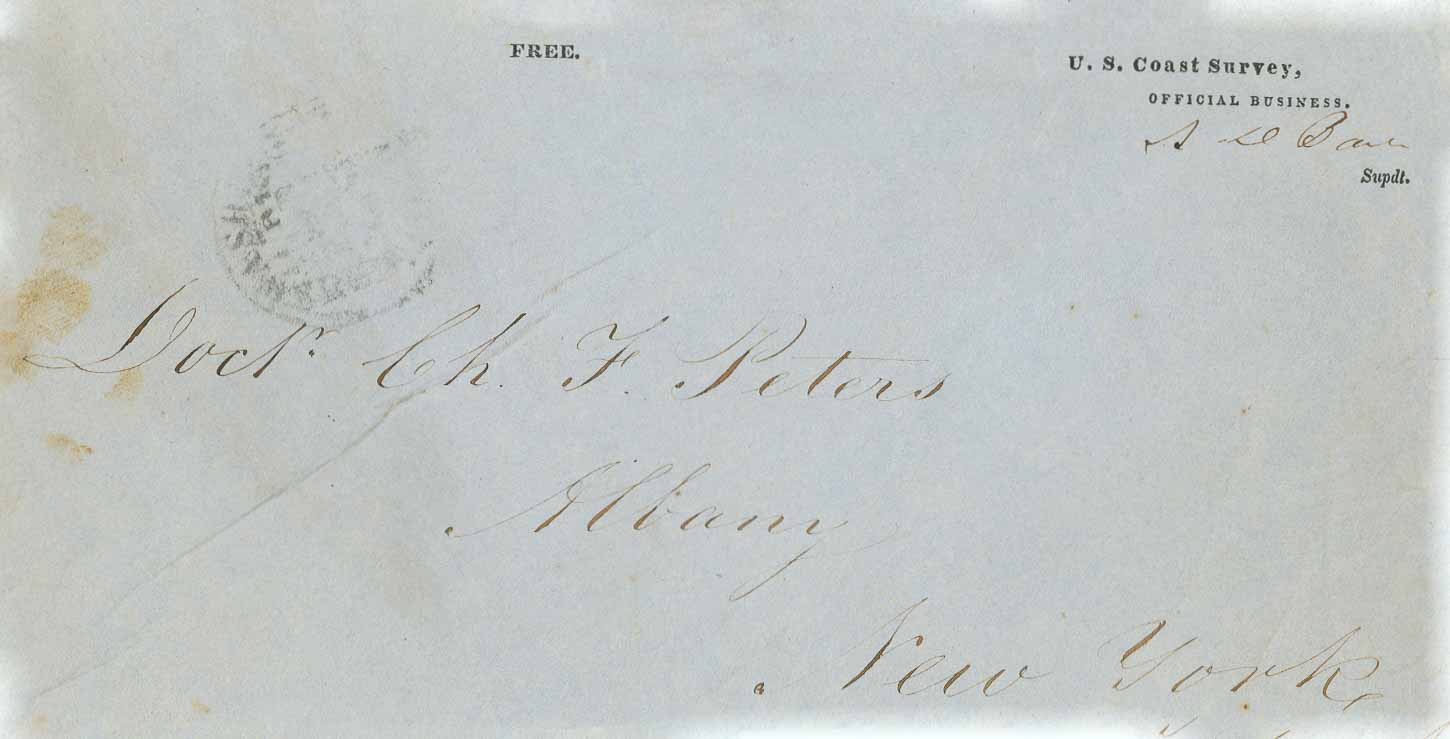 FREE.
U. S. Coast Survey,
OFFICIAL BUSINESS.
A D Bache
Supdt.
Doctr. Ch. F. Peters
Albany
New York